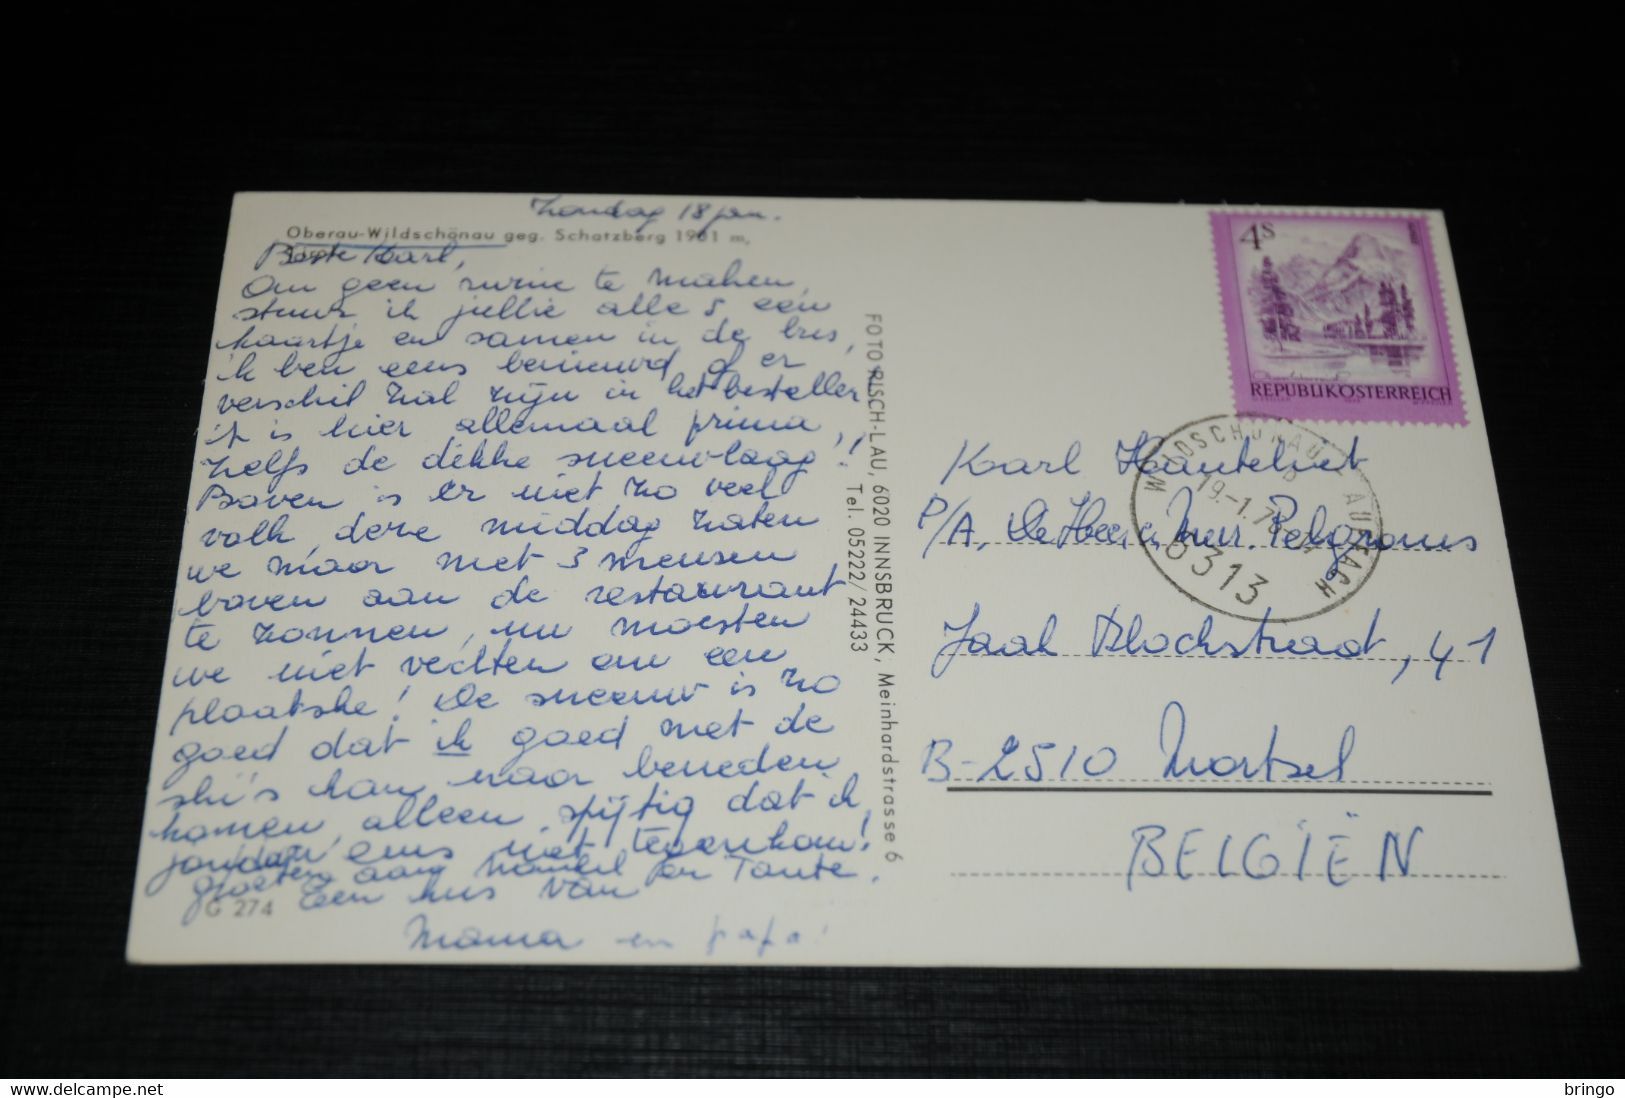 Zondag 18 jan.
Oberau-Wildschönau geg. Schatzberg 1901 m,
Tirol
Beste Karl,
Om geen ruzie te maken,
stuur ik jullie alle 5 een
kaartje en samen in de bus,
ik ben eens benieuwd of er
verschil zal zijn in het bestellen
it is hier allemaal prima,
zelfs de dikke sneeuwlaag!
Boven is er niet zo veel
volk, deze middag zaten
we maar met 3 mensen
boven aan de restaurant
te zonnen, nu moesten
we niet vechten om een
plaatske! De sneeuw is zo
goed dat ik goed met de
ski's kan naar beneden
komen, alleen spijtig dat ik
jou daar eens niet tegenkom!
groeten aan Nonkel en Tante.
Een kus van
Mama en papa!
G 274
FOTO RISCH-LAU, 6020 INNSBRUCK, Meinhardstrasse 6
Tel. 05222/24433
4S
REPUBLIK ÖSTERREICH
WILDSCHÖNAU - AUFFACH
19.-1.76
6313
Karl
P/A. De Heer en Mevr. Pelgroms
Jaak Blockstraat, 41
B-2510 Mortsel
BELGIËN
delcampe.net
bringo